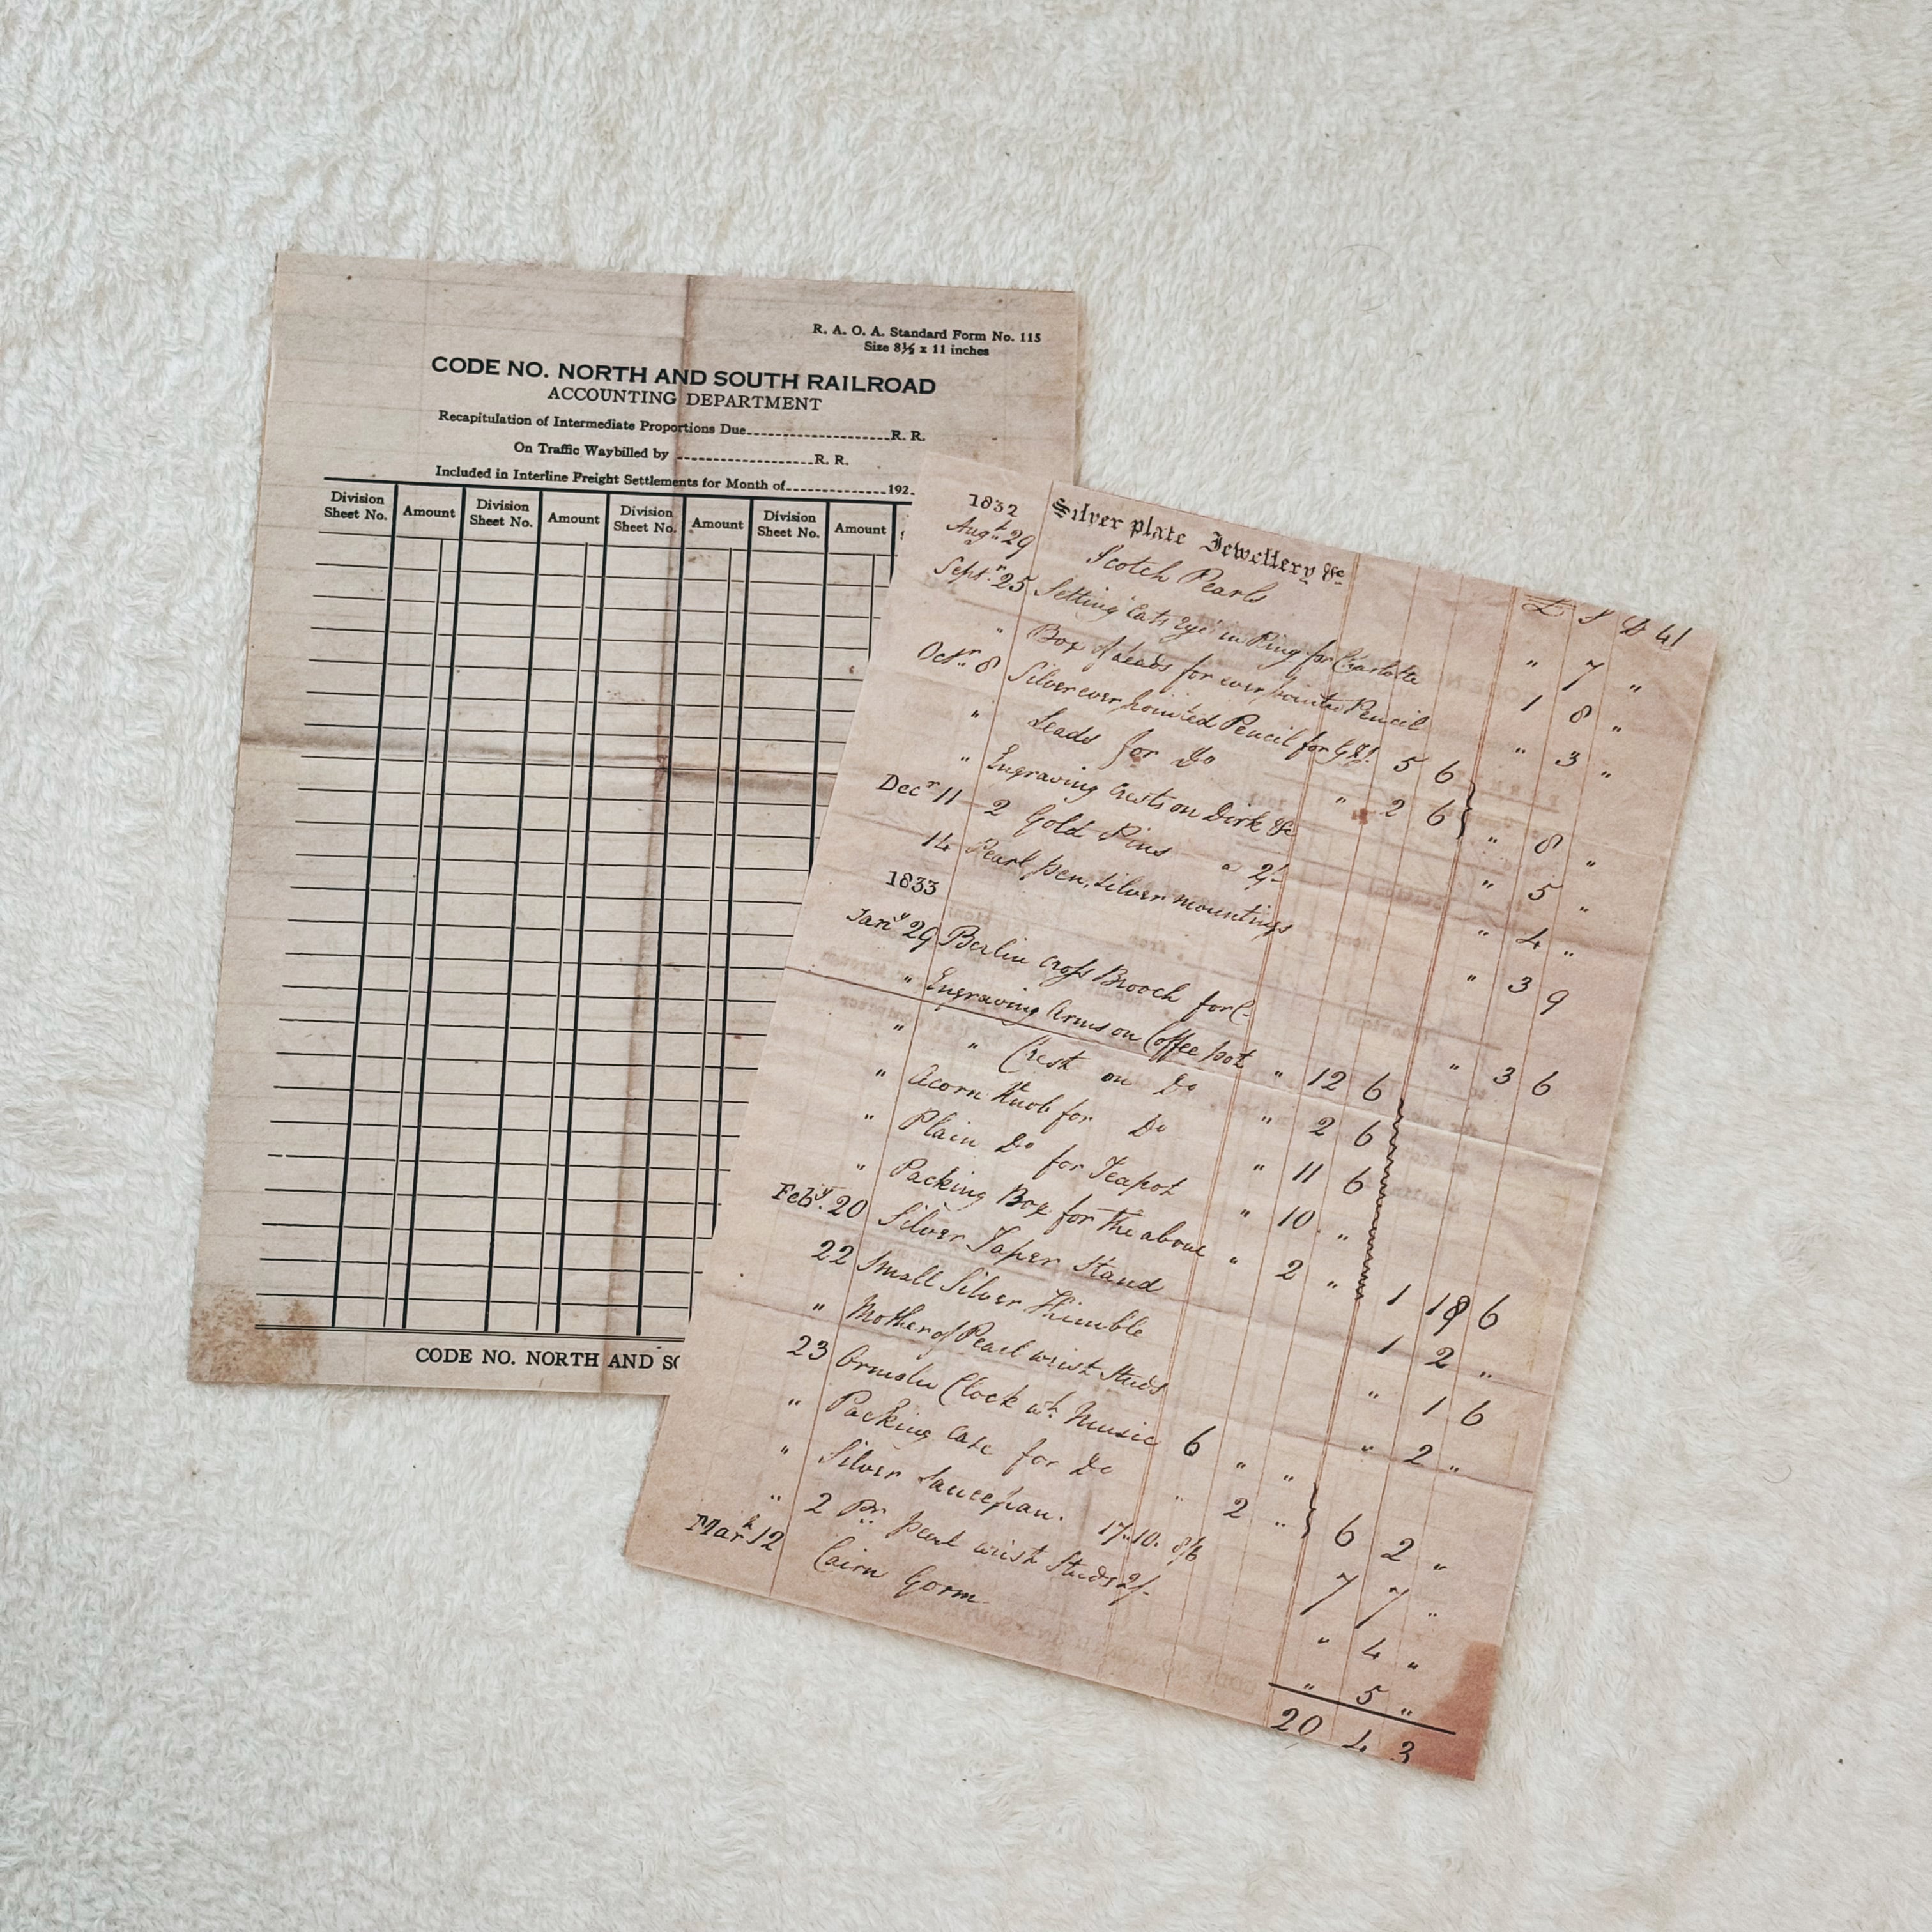 R. A. O. A. Standard Form No. 115
Size 8½ x 11 inches
CODE NO. NORTH AND SOUTH RAILROAD
ACCOUNTING DEPARTMENT
Recapitulation of Intermediate Proportions Due R. R.
On Traffic Waybilled by R. R.
Included in Interline Freight Settlements for Month of 192
Division Sheet No. Amount Division Sheet No. Amount Division Sheet No. Amount Division Sheet No. Amount
CODE NO. NORTH AND SO
1832 Silver plate Jewellery &c £ S D 41
Augt 29 Scotch Pearls " 7 "
Septr 25 Setting Cats Eye in Ring for Charlotte 1 8 "
" Box of Leads for ever pointed Pencil " 3 "
Octr 8 Silver ever pointed Pencil for 5 6
" Leads for Do " 2 6 } " 8 "
" Engraving Crests on Dirk &c " 5 "
Decr 11 2 Gold Pins a 2/- " 4 "
14 Pearl pen, silver mountings " 3 9
1833
Jany 29 Berlin cross Brooch for C- " 3 6
" Engraving Arms on Coffee pot " 12 6
" " Crest on Do " 2 6
" Acorn Knob for Do " 11 6
" Plain Do for Teapot " 10 "
" Packing Box for the above " 2 " 1 18 6
Feby 20 Silver Taper Stand 1 2 "
22 Small Silver Thimble " 1 6
" Mother of Pearl wrist Studs " 2 "
23 Ormolu Clock wh. Music 6 " "
" Packing case for Do " 2 " } 6 2 "
" Silver Saucepan. 17.10. 8/6 7 7 "
" 2 Pr pearl wrist Studs 2/- " 4 "
Marh 12 Cairn Gorm " 5 "
20 4 3